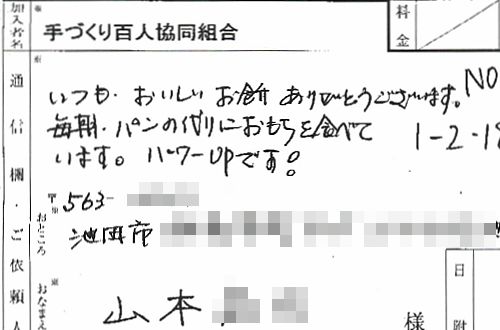 加入者名
手づくり百人協同組合
料金
通信欄・ご依頼人
いつも、おいしいお餅ありがとうございます。
毎朝、パンの代りにおもちを食べて
います。パワーUPです!
NO
1-2-19
〒563-
おところ
池田市
おなまえ
山本
様
日附